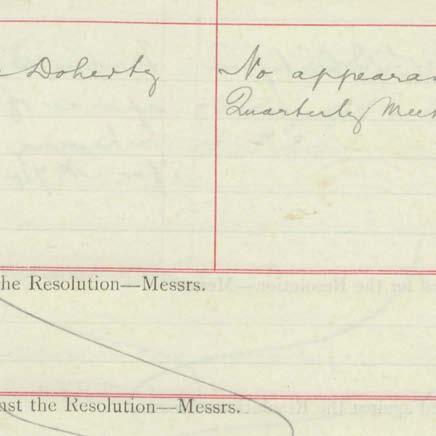 Doherty No appearan
Quarterly Meet
he Resolution—Messrs.
nst the Resolution—Messrs.